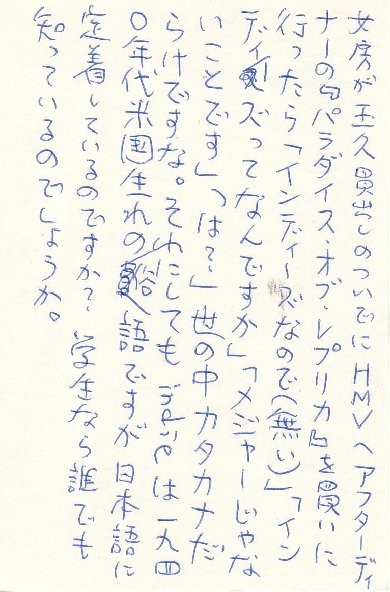 女房が玉久買出しのついでにHMVへアフターディ
ナーの『パラダイス・オブ・レプリカ』を買いに
行ったら「インディーズなので(無い)」「イン
ディーズってなんですか」「メジャーじゃな
いことです」「は?」世の中カタカナだ
らけですな。それにしても indie は一九四
〇年代米国生れの俗語ですが日本語に
定着しているのですか? 学生なら誰でも
知っているのでしょうか。